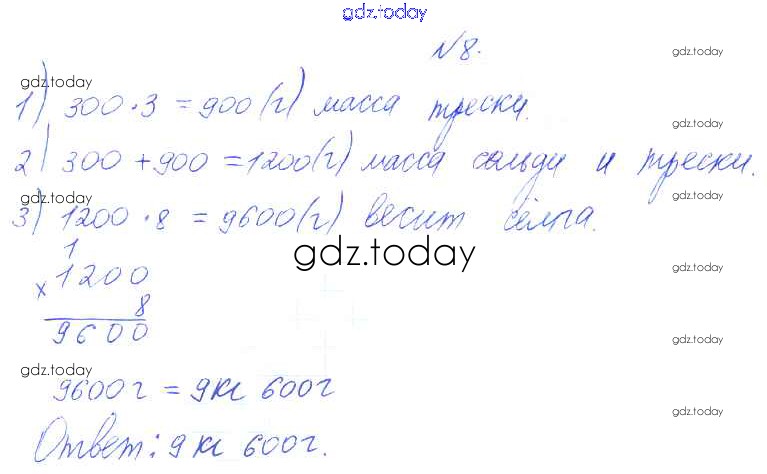 gdz.today
№8.
gdz.today
gdz.today
1) 300 · 3 = 900 (г) масса трески.
gdz.today
2) 300 + 900 = 1200 (г) масса сельди и трески.
gdz.today
gdz.today
3) 1200 · 8 = 9600 (г) весит сёмга.
gdz.today
1
× 1200
8
9600
gdz.today
gdz.today
gdz.today
9600 г = 9 кг 600 г
gdz.today
Ответ: 9 кг 600 г.
gdz.today